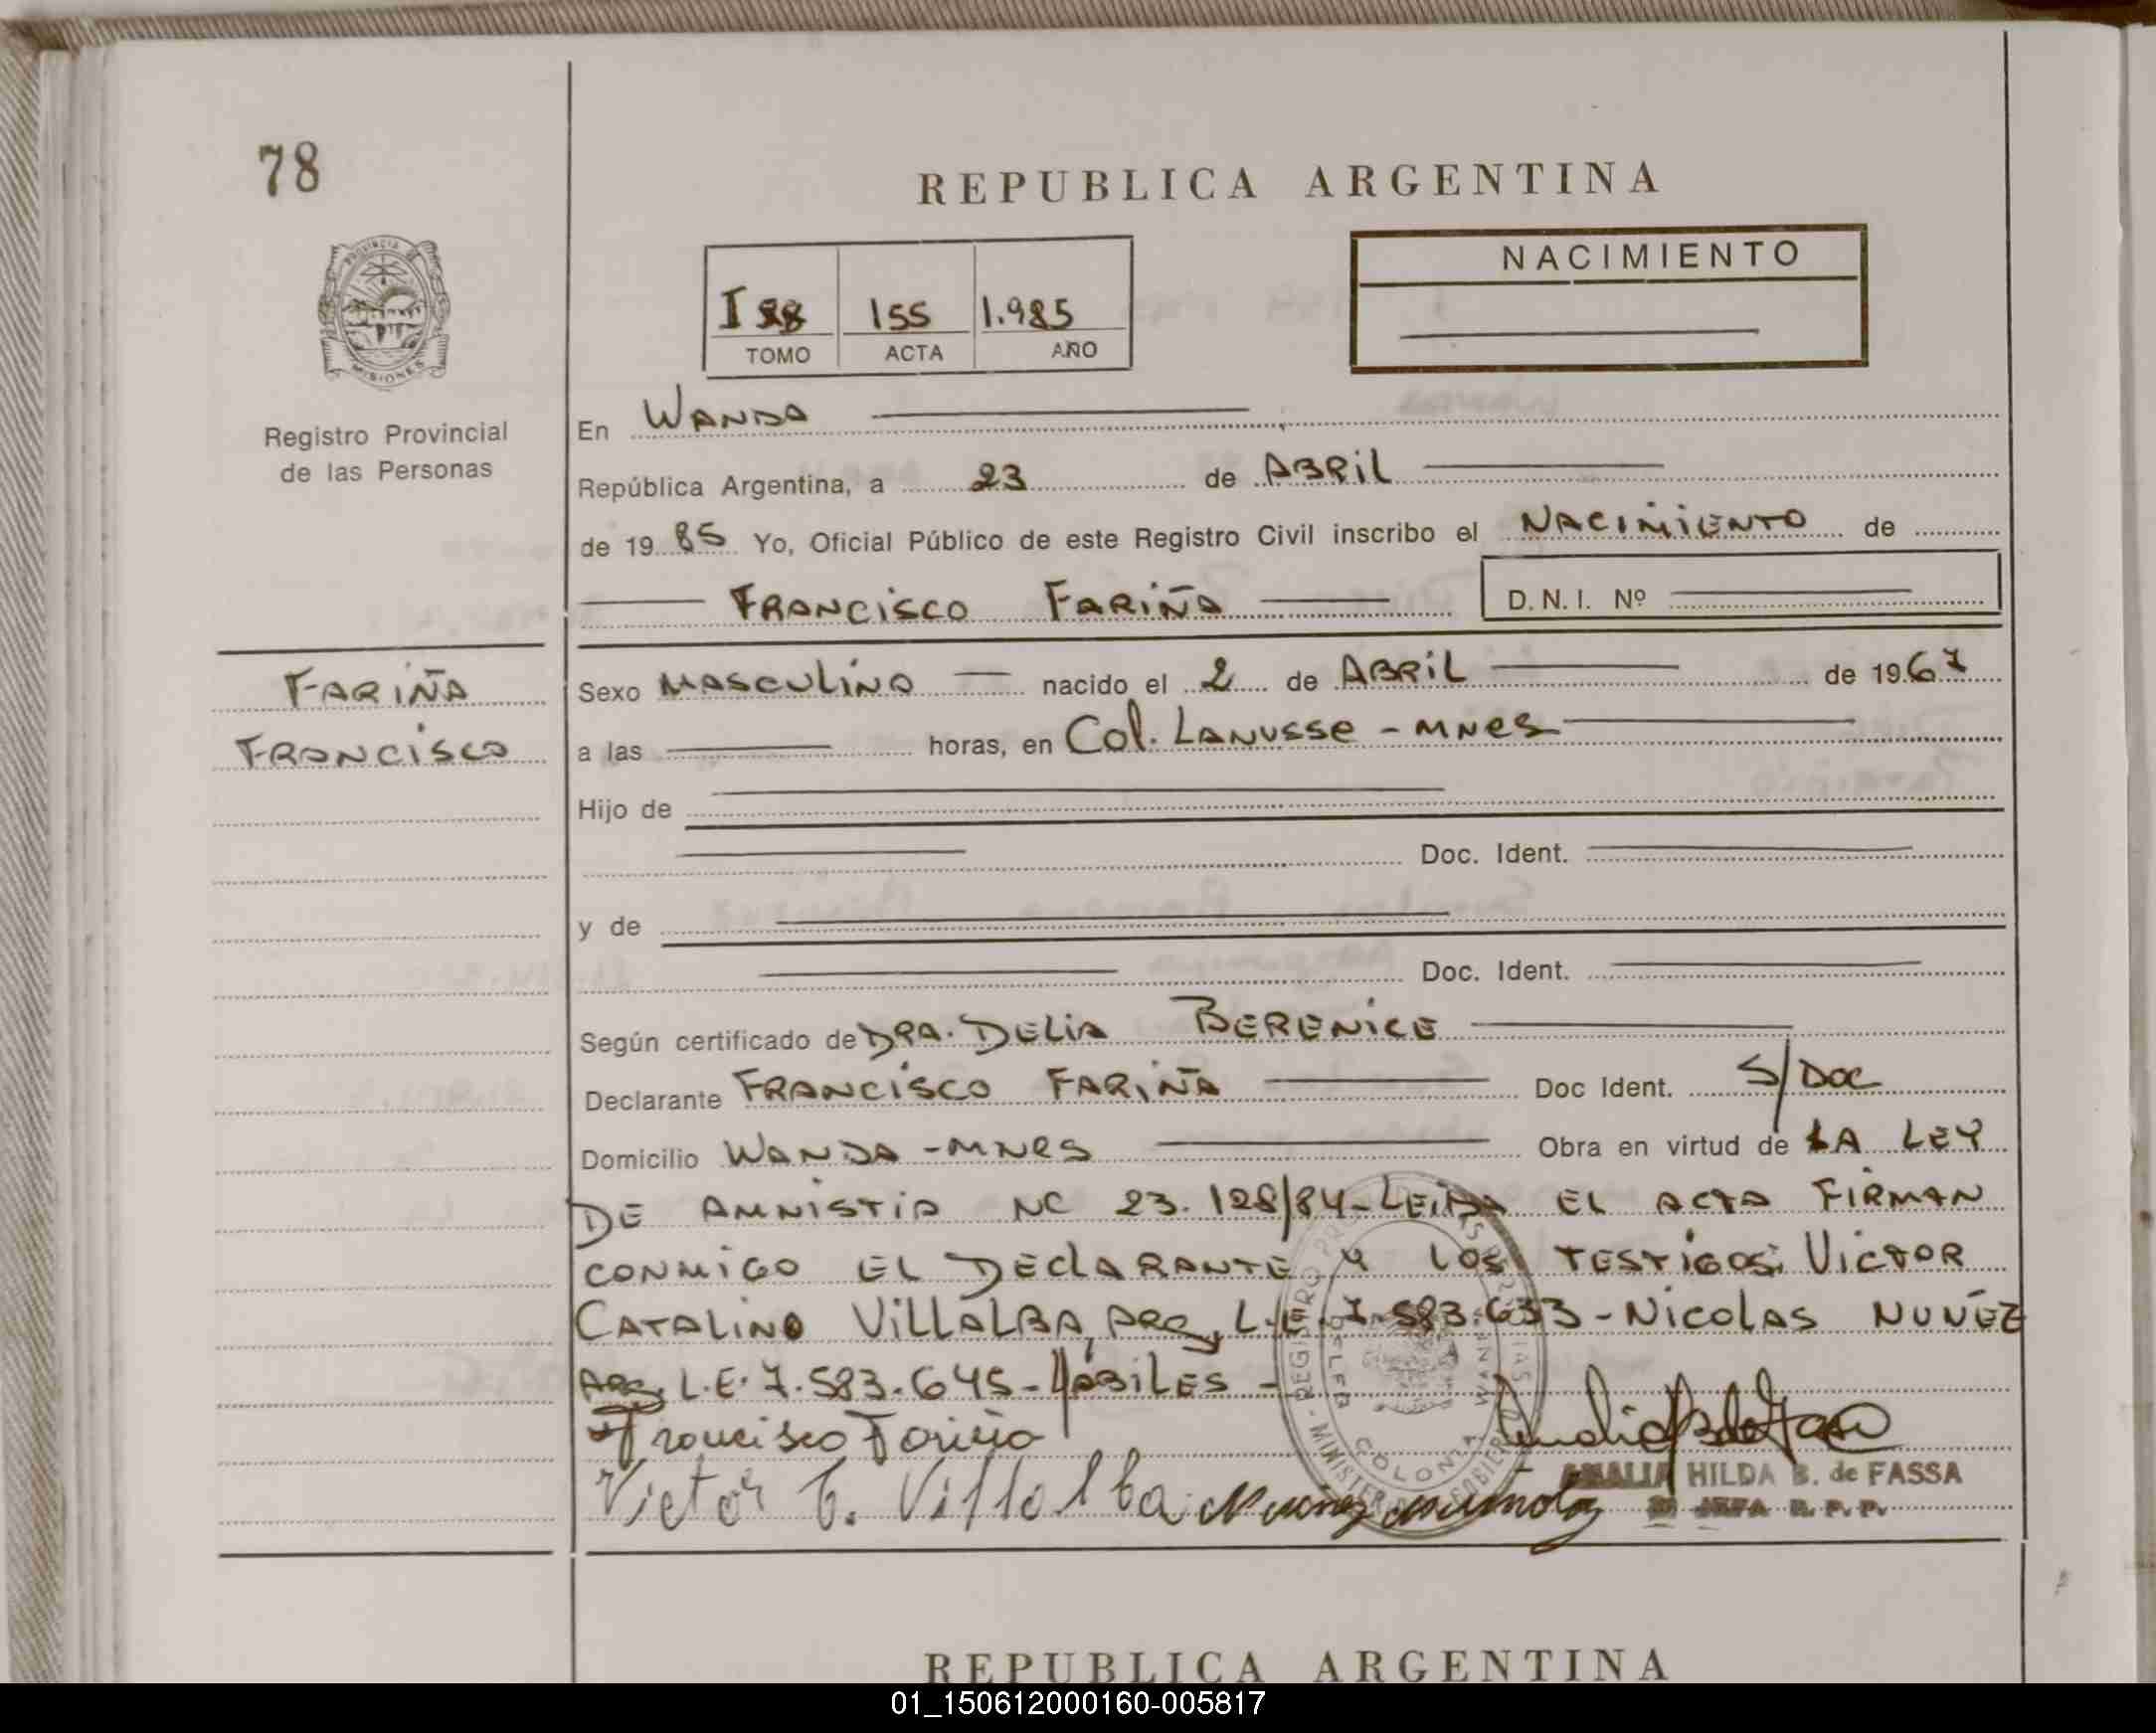 78
REPUBLICA ARGENTINA
PROVINCIA
MISIONES
NACIMIENTO
I 88 155 1.985
TOMO ACTA AÑO
Registro Provincial
de las Personas
En WANDA
República Argentina, a 23 de ABRIL
de 19 85 Yo, Oficial Público de este Registro Civil inscribo el NACIMIENTO de
FRANCISCO FARIÑA D.N.I. Nº
FARIÑA
FRANCISCO
Sexo MASCULINO nacido el 2 de ABRIL de 1967
a las horas, en Col. LANUSSE - MNES
Hijo de
Doc. Ident.
y de
Doc. Ident.
Según certificado de DRA. DELIA BERENICE
Declarante FRANCISCO FARIÑA Doc Ident. S/DOC
Domicilio WANDA - MNES Obra en virtud de LA LEY
DE AMNISTIA NC 23.128/84 - LEIDA EL ACTA FIRMAN
CONMIGO EL DECLARANTE Y LOS TESTIGOS: VICTOR
CATALINO VILLALBA, ARG, L.E. 7.583.633 - NICOLAS NUÑEZ
ARG. L.E. 7.583.645 - HABILES -
Francisco Fariña
Victor C. Villalba
AMALIA HILDA B. de FASSA
JEFA R. P. P.
REPUBLICA ARGENTINA
01_150612000160-005817